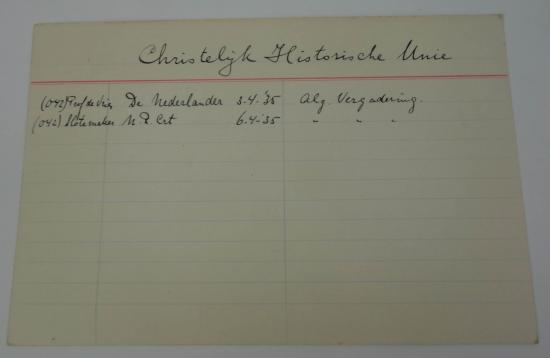 Christelijk Historische Unie
(042) Prof de Vries De Nederlander 3.4.'35 Alg. Vergadering.
(042) Slotemaker N R Crt 6.4.'35 " " "